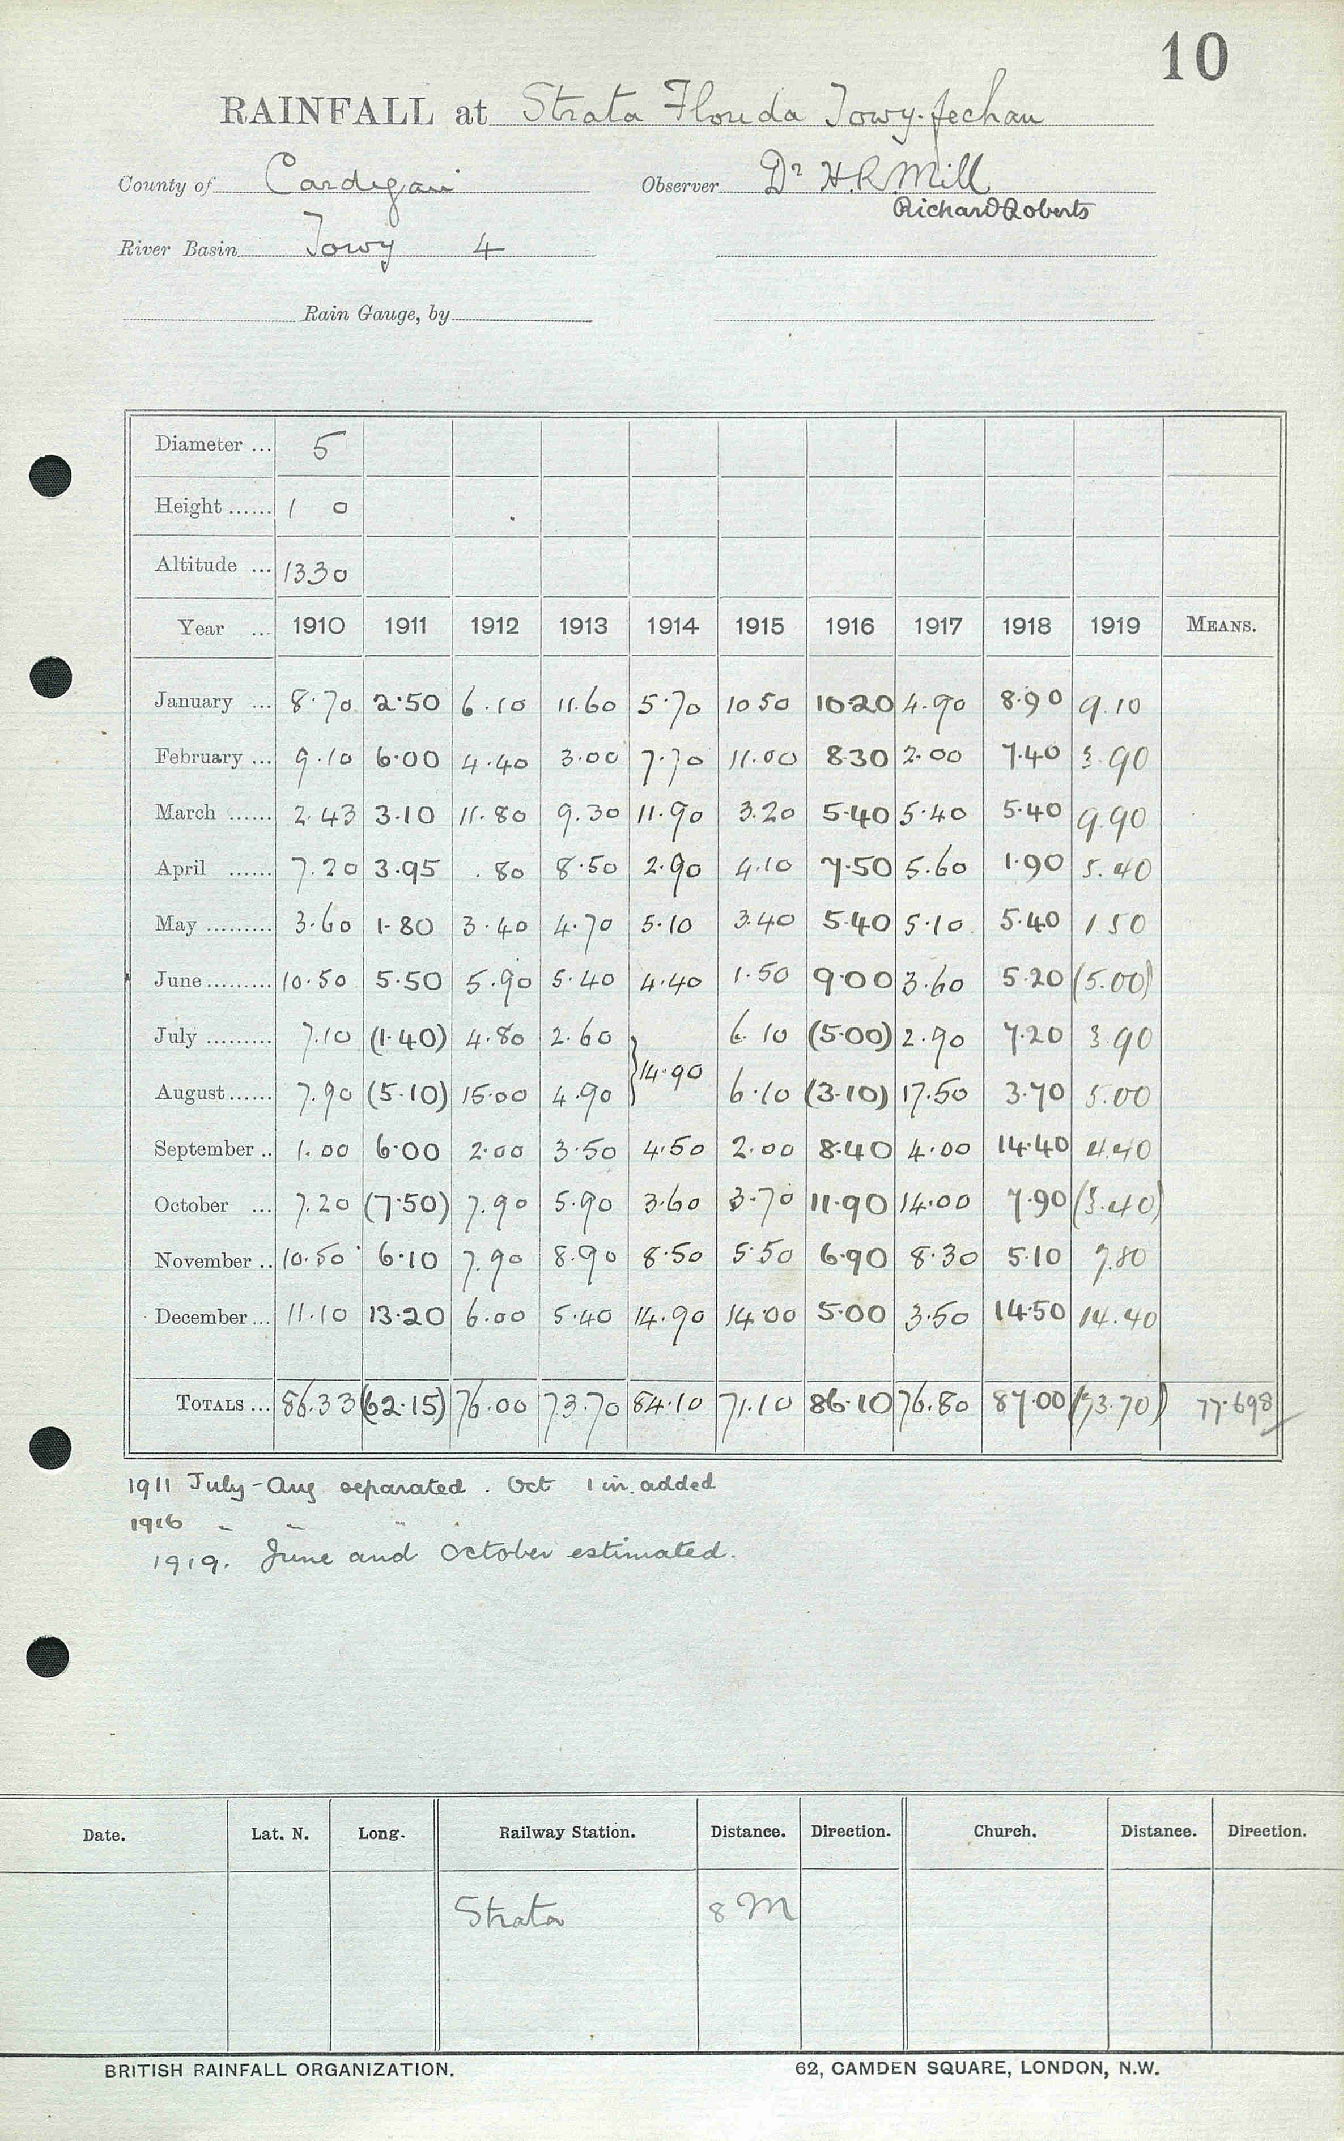 10
RAINFALL at Strata Florida Towy-fechan
County of Cardigan Observer Dr H.R. Mill
Richard Roberts
River Basin Towy 4
Rain Gauge, by
Diameter ... 5
Height ...... 1 0
Altitude ... 1330
Year ... 1910 1911 1912 1913 1914 1915 1916 1917 1918 1919 MEANS.
January ... 8.70 2.50 6.10 11.60 5.70 10.50 10.20 4.90 8.90 9.10
February ... 9.10 6.00 4.40 3.00 7.70 11.00 8.30 2.00 7.40 3.90
March ...... 2.43 3.10 11.80 9.30 11.90 3.20 5.40 5.40 5.40 9.90
April ...... 7.20 3.95 .80 8.50 2.90 4.10 7.50 5.60 1.90 5.40
May ......... 3.60 1.80 3.40 4.70 5.10 3.40 5.40 5.10 5.40 1 50
June ......... 10.50 5.50 5.90 5.40 4.40 1.50 9.00 3.60 5.20 (5.00)
July ......... 7.10 (1.40) 4.80 2.60 } 14.90 6.10 (5.00) 2.90 7.20 3.90
August ...... 7.90 (5.10) 15.00 4.90 6.10 (3.10) 17.50 3.70 5.00
September .. 1.00 6.00 2.00 3.50 4.50 2.00 8.40 4.00 14.40 4.40
October ... 7.20 (7.50) 7.90 5.90 3.60 3.70 11.90 14.00 7.90 (3.40)
November .. 10.50 6.10 7.90 8.90 8.50 5.50 6.90 8.30 5.10 7.80
December ... 11.10 13.20 6.00 5.40 14.90 14.00 5.00 3.50 14.50 14.40
TOTALS ... 86.33 (62.15) 76.00 73.70 84.10 71.10 86.10 76.80 87.00 (73.70) 77.698
1911 July - Aug separated. Oct 1 in. added
1916 " " "
1919. June and October estimated.
Date. Lat. N. Long. Railway Station. Distance. Direction. Church. Distance. Direction.
Strata 8 M
BRITISH RAINFALL ORGANIZATION. 62, CAMDEN SQUARE, LONDON, N.W.